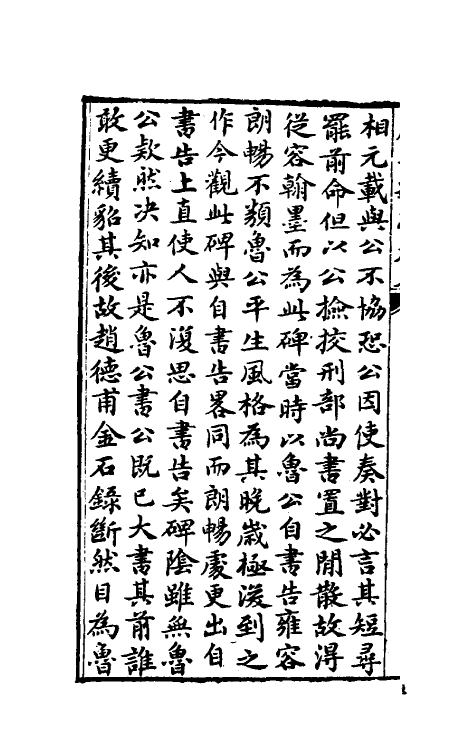 相元載與公不協恐公因使奏對必言其短尋
罷前命但以公撿挍刑部尚書置之閒散故得
従容翰墨而為此碑當時以魯公自書告雍容
朗暢不類魯公平生風格為其晚歲極深到之
作今觀此碑與自書告畧同而朗暢處更出自
書告上直使人不復思自書告矣碑陰雖無魯
公欵然决知亦是魯公書公既已大書其前誰
敢更續貂其後故趙德甫金石錄斷然目為魯